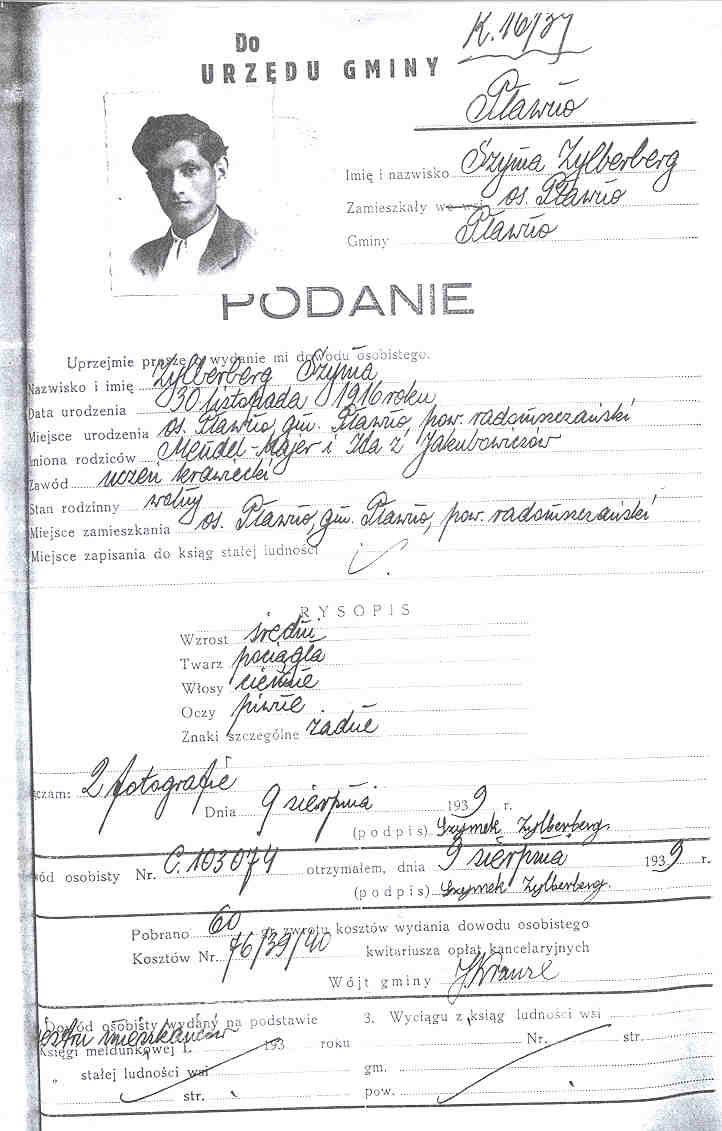 K. 16/37
Do
URZĘDU GMINY
Pławno
Imię i nazwisko Szyma Zylberberg
Zamieszkały we wsi os. Pławno
Gminy Pławno
PODANIE
Uprzejmie proszę o wydanie mi dowodu osobistego.
Nazwisko i imię Zylberberg Szyma
Data urodzenia 30 listopada 1916 roku
Miejsce urodzenia os. Pławno, gm. Pławno, pow. radomszczański
Imiona rodziców Mendel-Majer i Ida z Jakubowiczów
Zawód uczeń krawiecki
Stan rodzinny wolny
Miejsce zamieszkania os. Pławno, gm. Pławno, pow. radomszczański
Miejsce zapisania do ksiąg stałej ludności
RYSOPIS
Wzrost średni
Twarz pociągła
Włosy ciemne
Oczy piwne
Znaki szczególne żadne
czam: 2 fotografie
Dnia 9 sierpnia 1939 r.
(podpis) Szymek Zylberberg.
wód osobisty Nr. C. 103074 otrzymałem, dnia 9 sierpnia 1939 r.
(podpis) Szymek Zylberberg.
Pobrano 60 gr zwrotu kosztów wydania dowodu osobistego
Kosztów Nr. 76/39/40 kwitariusza opłat kancelaryjnych
Wójt gminy
Dowód osobisty wydany na podstawie
mieszkańców
Księgi meldunkowej 1. 193 roku
" stałej ludności wsi
str.
3. Wyciągu z ksiąg ludności wsi
Nr. str.
gm.
pow.